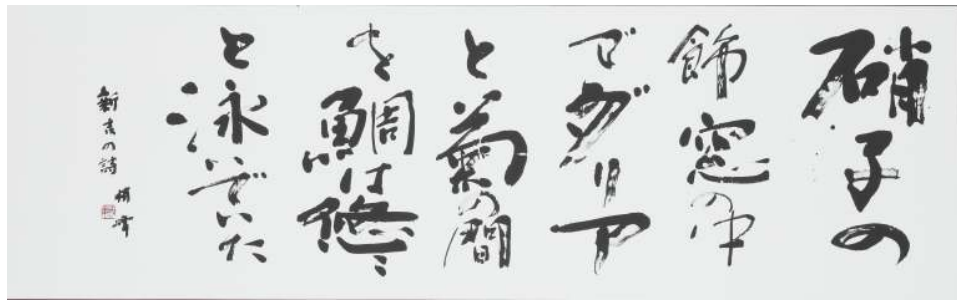 硝子の
飾窓の中
でダリア
と菊の間
を鯛は悠ミ
と泳いでいた
新吉の詩